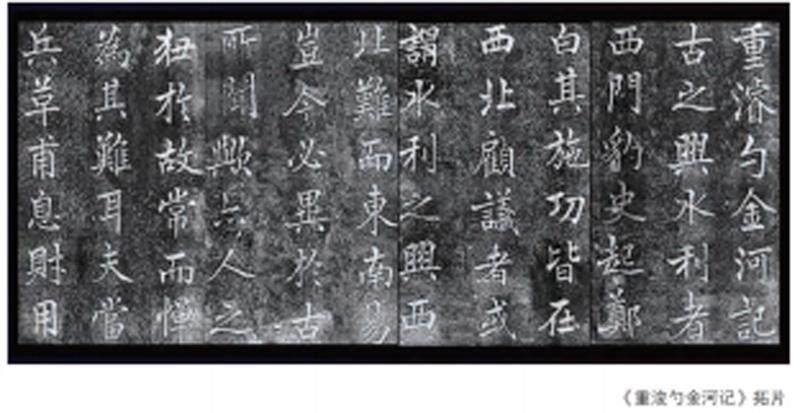 重濬勺金河記
古之興水利者
西門豹史起鄭
白其施功皆在
西北顧議者或
謂水利之興西
北難而東南易
豈今必異於古
所聞歟亦人之
狃於故常而憚
為其難耳夫當
兵草甫息財用
《重浚勺金河记》拓片